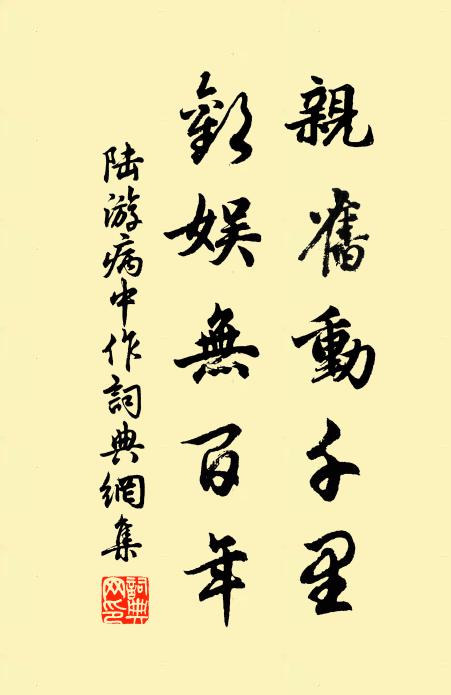 親舊動千里
歡娱無百年
陆游病中作詞典網集
詞典網印